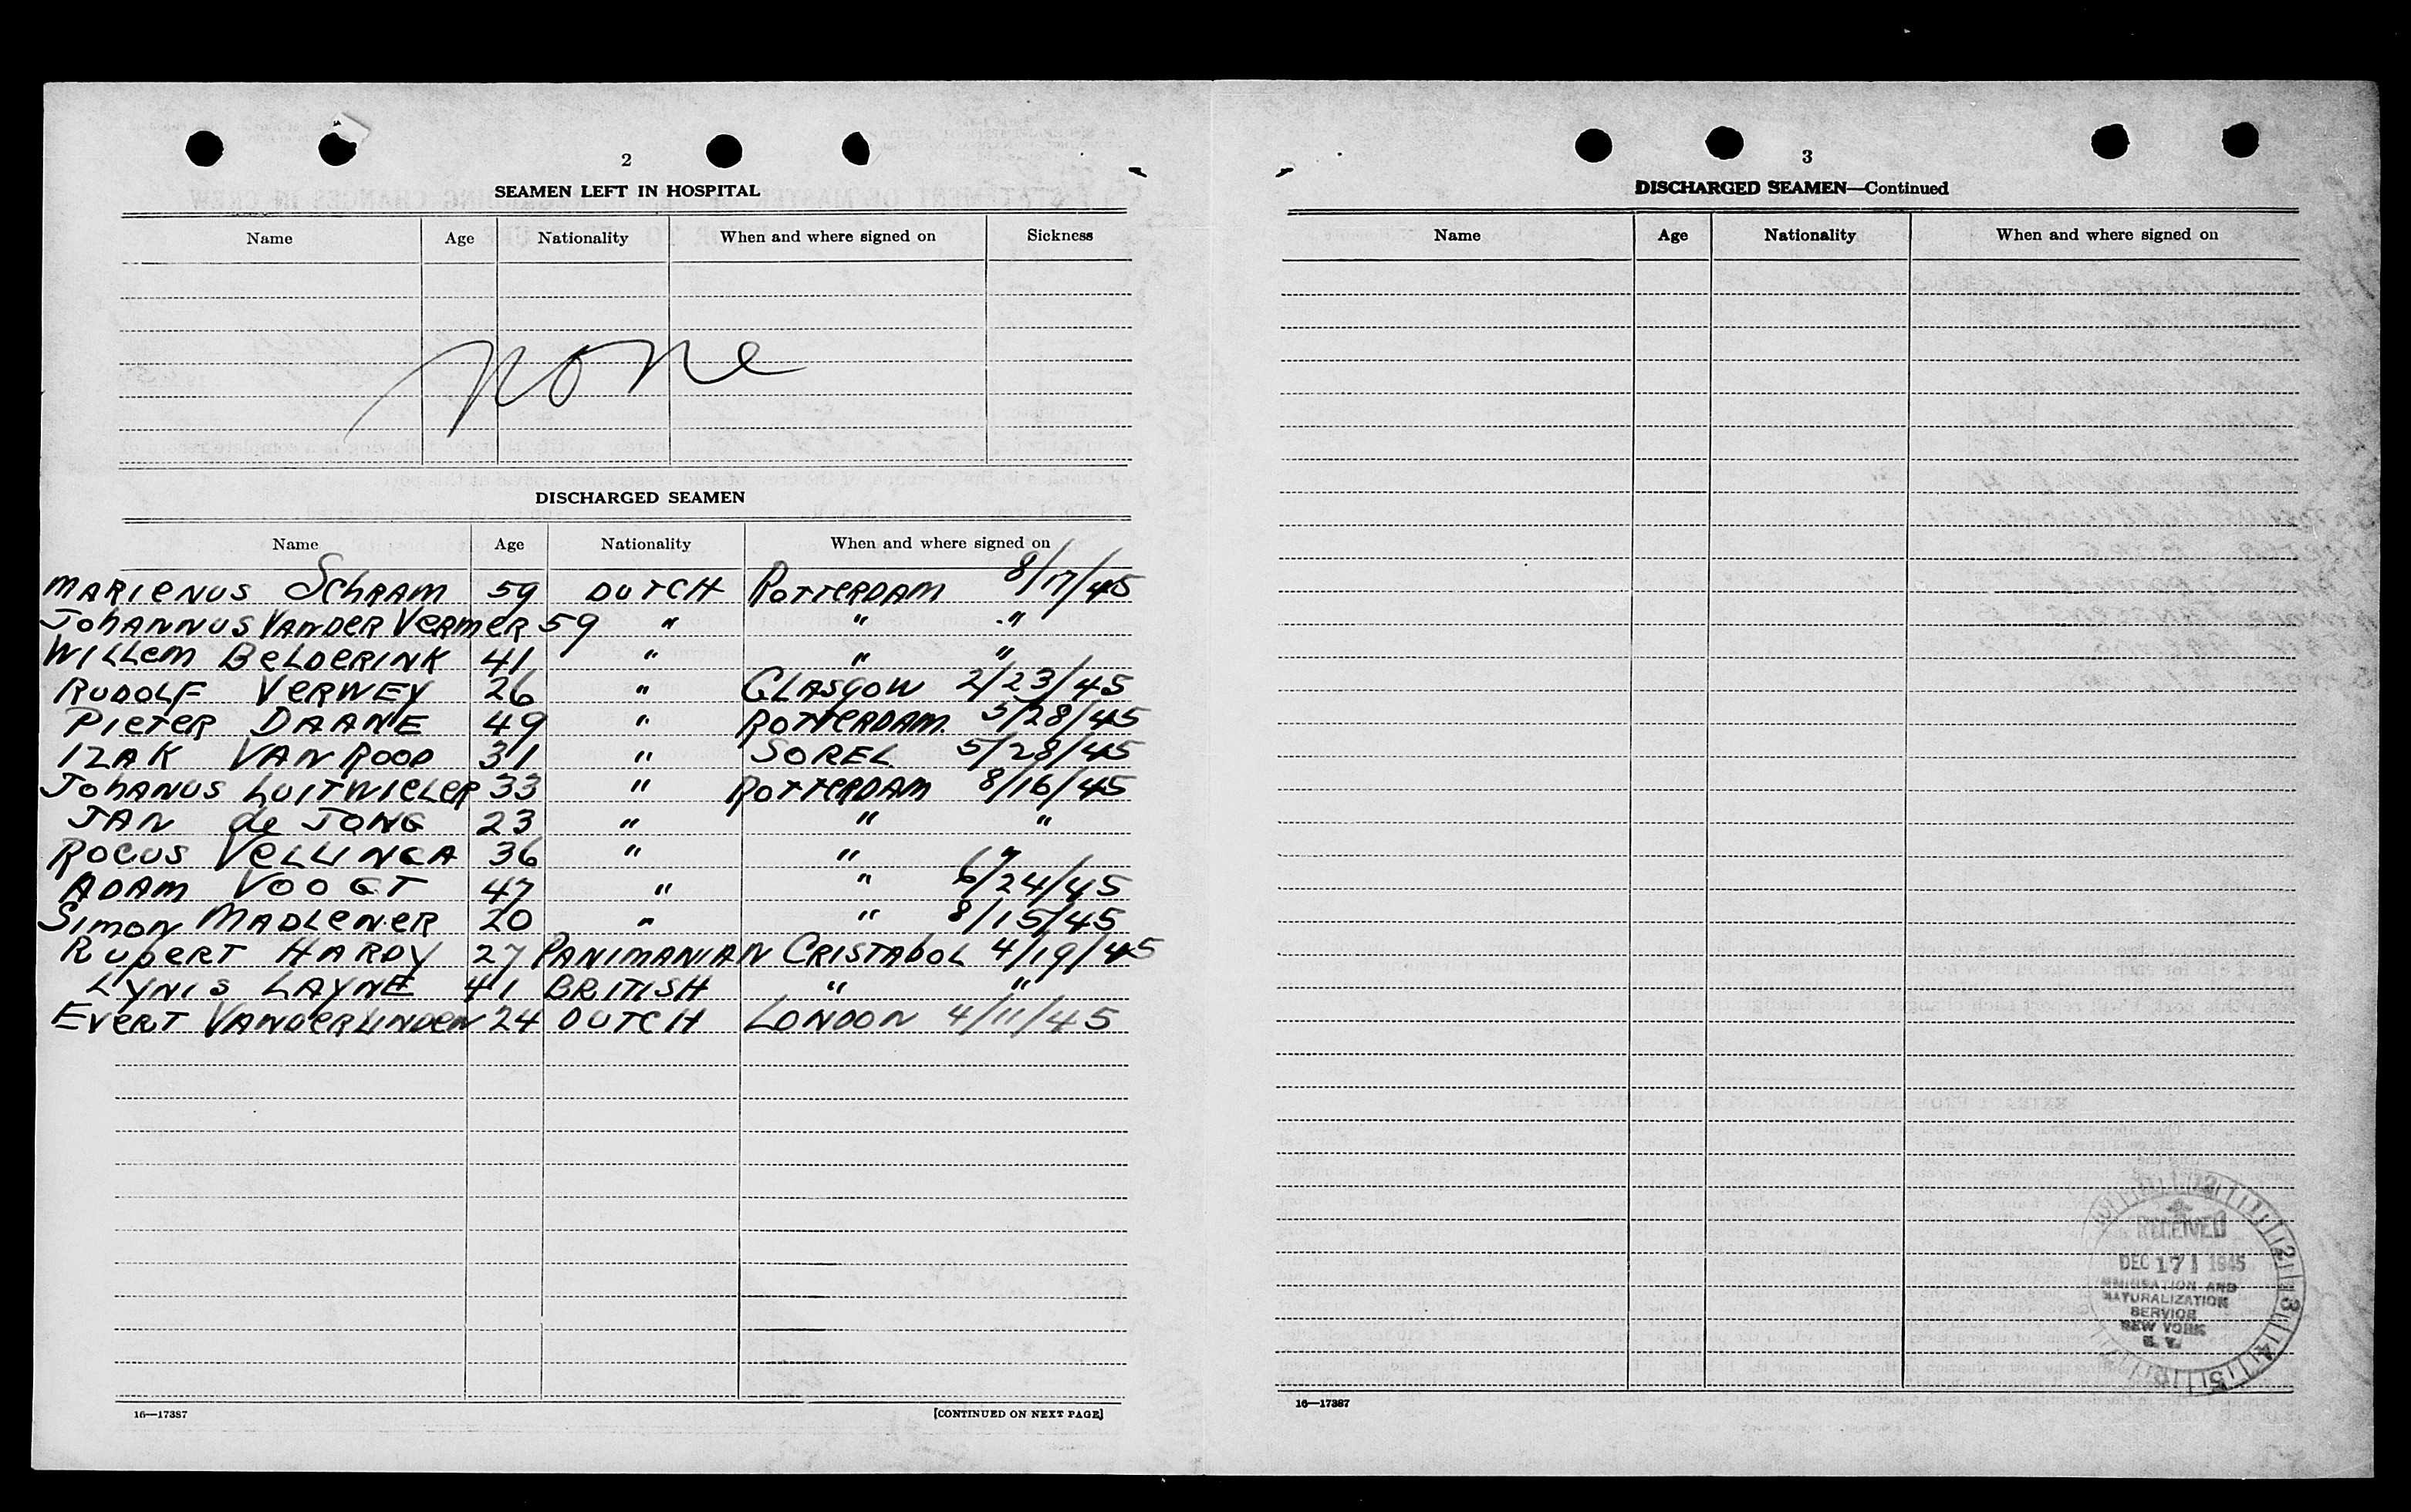 2
SEAMEN LEFT IN HOSPITAL
Name Age Nationality When and where signed on Sickness
None
DISCHARGED SEAMEN
Name Age Nationality When and where signed on
MARIENUS SCHRAM 59 DUTCH ROTTERDAM 8/17/45
JOHANNUS VANDER VERMER 59 " " "
WILLEM BELDERINK 41 " " "
RUDOLF VERWEY 26 " GLASGOW 2/23/45
PIETER DAANE 49 " ROTTERDAM. 5/28/45
IZAK VAN ROOD 31 " SOREL 5/28/45
JOHANUS LUITWIELER 33 " ROTTERDAM 8/16/45
JAN de JONG 23 " " "
ROCUS VELLINGA 36 " " "
ADAM VOOGT 47 " " 6/24/45
SIMON MADLENER 20 " " 8/15/45
RUPERT HARDY 27 PANIMANIAN CRISTABOL 4/19/45
LYNIS LAYNE 41 BRITISH " "
EVERT VANDERLINDEN 24 DUTCH LONDON 4/11/45
16—17387 [CONTINUED ON NEXT PAGE]
3
DISCHARGED SEAMEN—Continued
Name Age Nationality When and where signed on
RECEIVED
DEC 17 1945
IMMIGRATION AND
NATURALIZATION
SERVICE
NEW YORK
N. Y.
16—17387